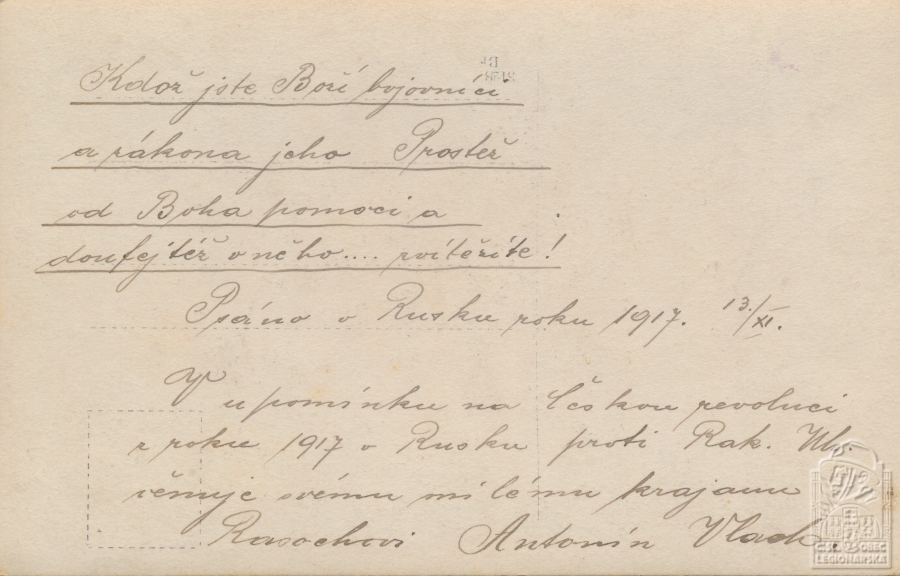 Kdož jste Boží bojovníci
a zákona jeho Prostež
od Boha pomoci a
doufejtéž v něho.... zvítězíte!
Psáno v Rusku roku 1917. 13./XI.
V upomínku na Českou revoluci
z roku 1917 v Rusku proti Rak. Uh.
věnuje svému milému krajanu
Rasochovi Antonín Vlach.
ČS. OBEC
LEGIONÁŘSKÁ